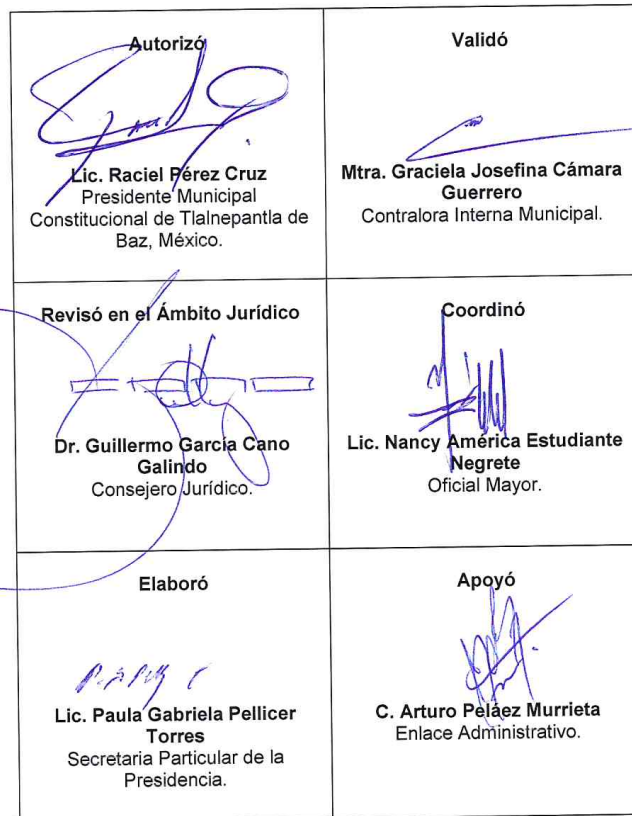 Autorizó
Lic. Raciel Pérez Cruz
Presidente Municipal
Constitucional de Tlalnepantla de
Baz, México.
Validó
Mtra. Graciela Josefina Cámara
Guerrero
Contralora Interna Municipal.
Revisó en el Ámbito Jurídico
Dr. Guillermo García Cano
Galindo
Consejero Jurídico.
Coordinó
Lic. Nancy América Estudiante
Negrete
Oficial Mayor.
Elaboró
Lic. Paula Gabriela Pellicer
Torres
Secretaria Particular de la
Presidencia.
Apoyó
C. Arturo Peláez Murrieta
Enlace Administrativo.